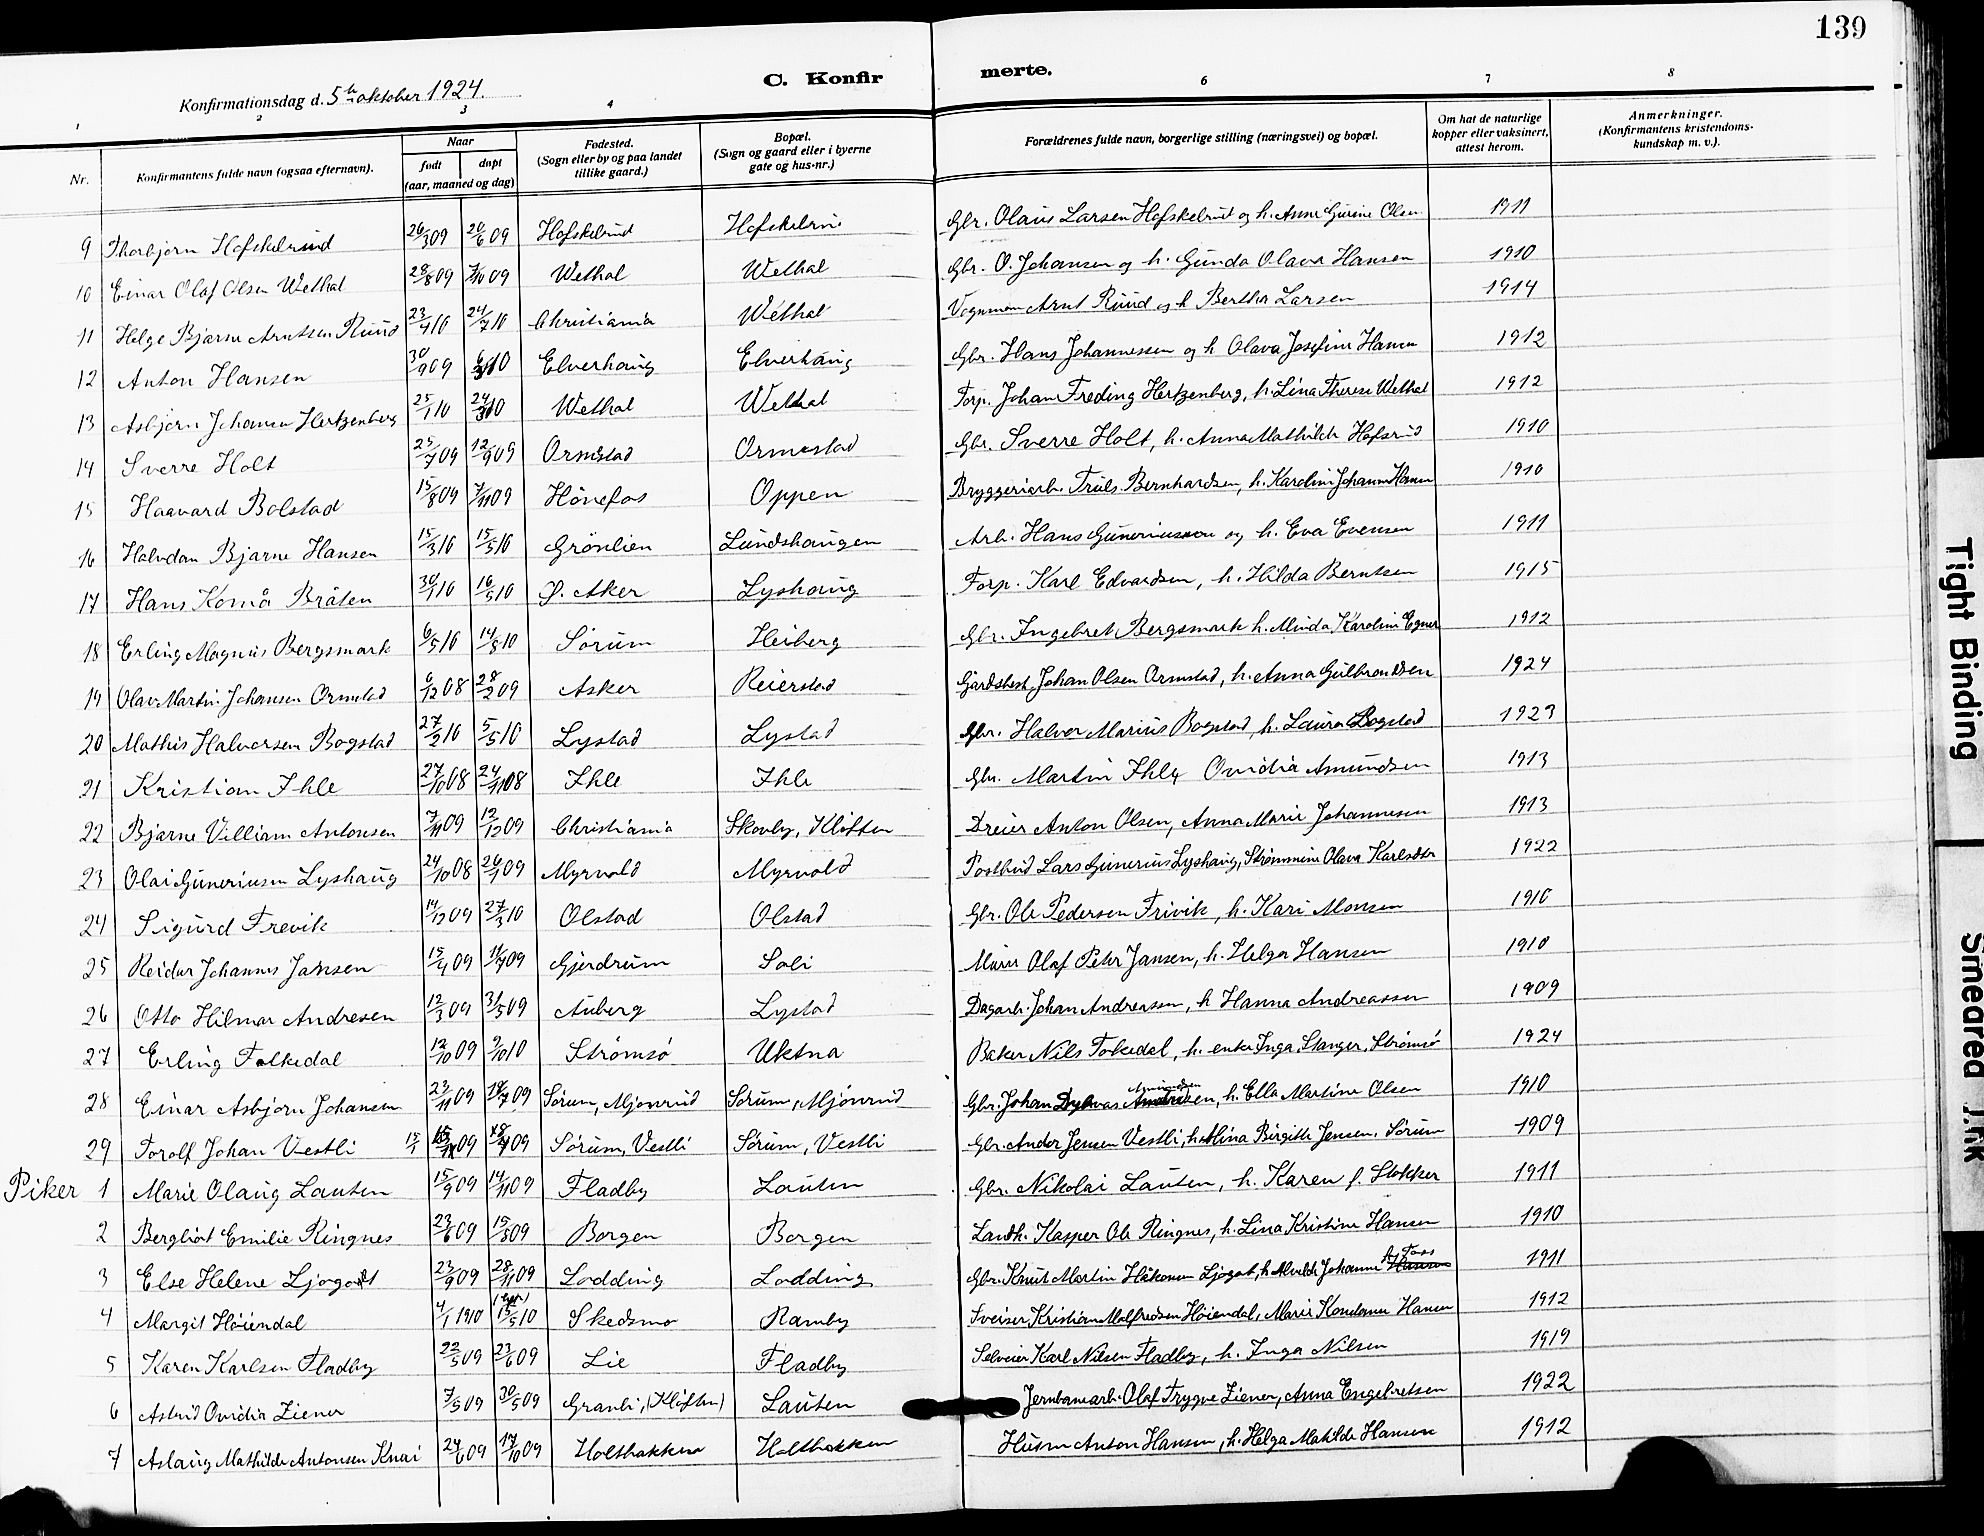 139
C. Konfirmerte.
Konfirmationsdag d. 5te oktober 1924.
1 2 3 4 6 7 8
Nr. Konfirmantens fulde navn (ogsaa efternavn). Naar født døpt (aar, maaned og dag) Fødested. (Sogn eller by og paa landet tillike gaard.) Bopæl. (Sogn og gaard eller i byerne gate og hus-nr.) Forældrenes fulde navn, borgerlige stilling (næringsvei) og bopæl. Om hat de naturlige kopper eller vaksinert, attest herom. Anmerkninger. (Konfirmantens kristendoms-kundskap m. v.).
9 Thorbjørn Hofskelrud 26/3 09 20/6 09 Hofskelrud Hofskelrud Gbr. Olaus Larsen Hofskelrud og h. Anne Gurine Olsen 1911
10 Einar Olaf Olsen Wethal 28/8 09 7/10 09 Wethal Wethal Gbr. O. Johansen og h. Gunda Olava Hansen 1910
11 Helge Bjarne Arntsen Ruud 23/4 10 24/7 10 Christiania Wethal Vognman Arnt Ruud og h Bertha Larsen 1914
12 Anton Hansen 30/9 09 6/3 10 Elverhaug Elverhaug Gbr. Hans Johannessen og h Olava Josefine Hansen 1912
13 Asbjørn Johansen Hertzenberg 25/1 10 24/3 10 Wethal Wethal Forp. Johan Freding Hertzenberg, h. Lina Therese Wethal 1912
14 Sverre Holt 25/7 09 12/9 09 Ormstad Ormestad Gbr. Sverre Holt, h. Anna Mathilde Hofsrud 1910
15 Haavard Bolstad 15/8 09 7/11 09 Hönefos Oppen Bryggeriarb. Truls Bernhardsen, h. Karoline Johanne Hansen 1910
16 Halvdan Bjarne Hansen 15/3 10 15/5 10 Grönlien Lundshaugen Arb. Hans Guneriussen og h. Eva Evensen 1911
17 Hans Komå Bråten 30/1 10 16/5 10 Ø. Aker Lyshaug Forp. Karl Edvardsen, h. Hilda Berntsen 1915
18 Erling Magnus Bergsmark 6/5 10 14/8 10 Sörum Heiberg Gbr. Ingebret Bergsmark h. Minda Karoline Egner 1912
19 Olav Martin Johansen Ormstad 6/12 08 28/2 09 Asker Reierstad Gårdsbest. Johan Olsen Ormstad, h. Anna Gulbrandsen 1924
20 Mathis Halvorsen Bogstad 27/2 10 5/5 10 Lystad Lystad Gbr. Halvor Marius Bogstad, h. Laura Bogstad 1923
21 Kristian Ihle 27/10 08 24/11 08 Ihle Ihle Gbr. Martin Ihle, Ovidia Amundsen 1913
22 Bjarne Villiam Antonsen 7/11 09 12/12 09 Christiania Skovly, Kløften Dreier Anton Olsen, Anna Marie Johannesen 1913
23 Olai Guneriusen Lyshaug 24/10 08 26/1 09 Myrvold Myrvold Postbud Lars Gunerius Lyshaug, Strømmine Olava Karlsdtr 1922
24 Sigurd Frevik 14/12 09 27/3 10 Olstad Olstad Gbr. Ole Pedersen Frivik, h. Kari Monsen 1910
25 Reidar Johannes Jansen 15/4 09 11/7 09 Gjerdrum Soli Murer Olaf Peter Jansen, h. Helga Hansen 1910
26 Otto Hilmar Andresen 12/3 09 31/5 09 Auberg Lystad Dagarb. Johan Andreassen, h Hanna Andreassen 1909
27 Erling Falkedal 12/10 09 9/10 10 Strömsö Uktna Baker Nils Tokedal, h. enke Inga Stanger, Strömsö 1924
28 Einar Asbjørn Johansen 23/11 09 18/7 09 Sörum, Mjönrud Sörum, Mjönrud Gbr. Johan Amundsen, h. Ella Martine Olsen 1910
29 Torolf Johan Vestli 15/1 09 18/4 09 Sörum, Vestli Sörum, Vestli Gbr. Anders Jensen Vestli, h. Alina Birgitte Jensen, Sörum 1909
Piker 1 Marie Olaug Lauten 15/9 09 14/11 09 Fladby Lauten Gbr. Nikolai Lauten, h. Karen f. Stokker 1911
2 Bergliot Emilie Ringnes 23/6 09 15/8 09 Borgen Borgen Landh. Kasper Ole Ringnes, h. Lina Kristine Hansen 1910
3 Else Helene Ljøgodt 23/9 09 28/11 09 Lodding Lodding Gbr. Knut Martin Håkonsen Ljøgot, h. Alvilde Johanne Aj Foss 1911
4 Margit Høiendal 4/1 1910 15/5 10 Skedsmo Ramby Sveiser Kristian Malfredsen Høiendal, Marie Konstanse Hansen 1912
5 Karen Karlsen Fladby 22/5 09 23/6 09 Lie Fladby Selveier Karl Nilsen Fladby, h. Inga Nilsen 1919
6 Astrid Ovidia Ziener 7/5 09 30/5 09 Granli, (Kløften) Lauten Jernbanearb. Olaf Trygve Ziener, Anna Engebretsen 1922
7 Aslaug Mathilde Antonsen Knai 24/6 09 17/10 09 Holtbakken Holtbakken Husm Anton Hansen, h. Helga Matilde Hansen 1912
Tight Binding
Smeared Ink